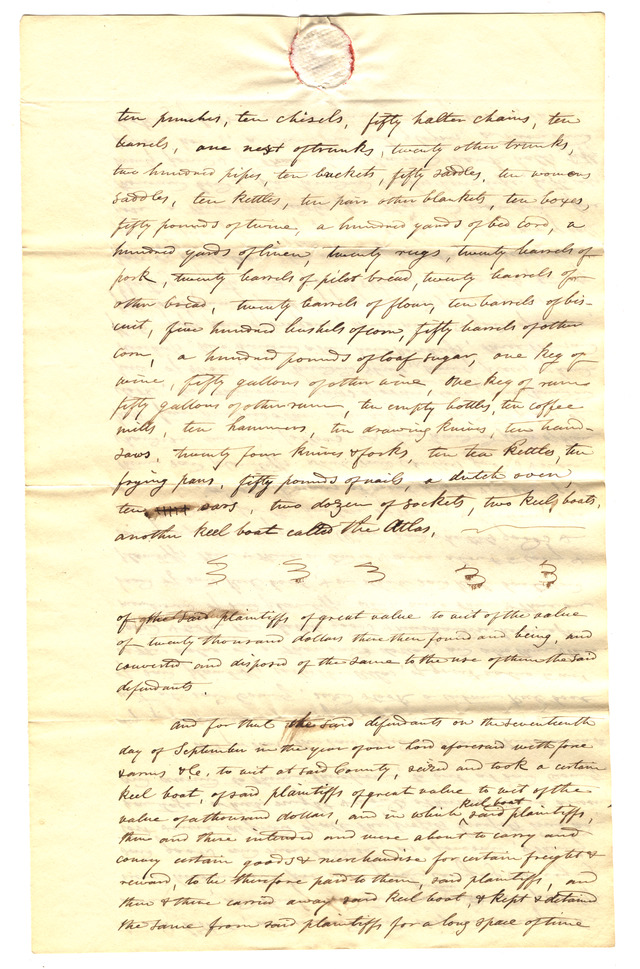 ten punches, ten chisels, fifty halter chains, ten
barrels, one nest of trunks, twenty other trunks,
two hundred pipes, ten buckets, fifty saddles, ten womens
saddles, ten kettles, ten pair other blankets, ten boxes,
fifty pounds of twine, a hundred yards of bed cord, a
hundred yards of linen, twenty rugs, twenty barrels of
pork, twenty barrels of pilot bread, twenty barrels of
other bread, twenty barrels of flour, ten barrels of bis-
cuit, five hundred bushels of corn, fifty barrels of other
corn, a hundred pounds of loaf sugar, one keg of
wine, fifty gallons of other wine, one keg of rum
fifty gallons of other rum, ten empty bottles, ten coffee
mills, ten hammers, ten drawing knives, ten hand-
saws, twenty four knives & forks, ten tea kettles, ten
frying pans, fifty pounds of nails, a dutch oven,
ten oars, two dozen of sockets, two keel boats,
another keel boat called the Atlas,
of the said plaintiffs of great value to wit of the value
of twenty thousand dollars there then found and being, and
converted and disposed of the same to the use of them the said
defendants.
And for that the said defendants on the seventeenth
day of September in the year of our Lord aforesaid with force
& arms &c. to wit at said County, seized and took a certain
keel boat, of said plaintiffs of great value to wit of the
value of a thousand dollars, and in which keel boat said plaintiffs,
then and there intended and were about to carry and
convey certain goods & merchandise for certain freight &
reward, to be therefore paid to them, said plaintiffs, and
then & there carried away said keel boat, & kept & detained
the same from said plaintiffs for a long space of time